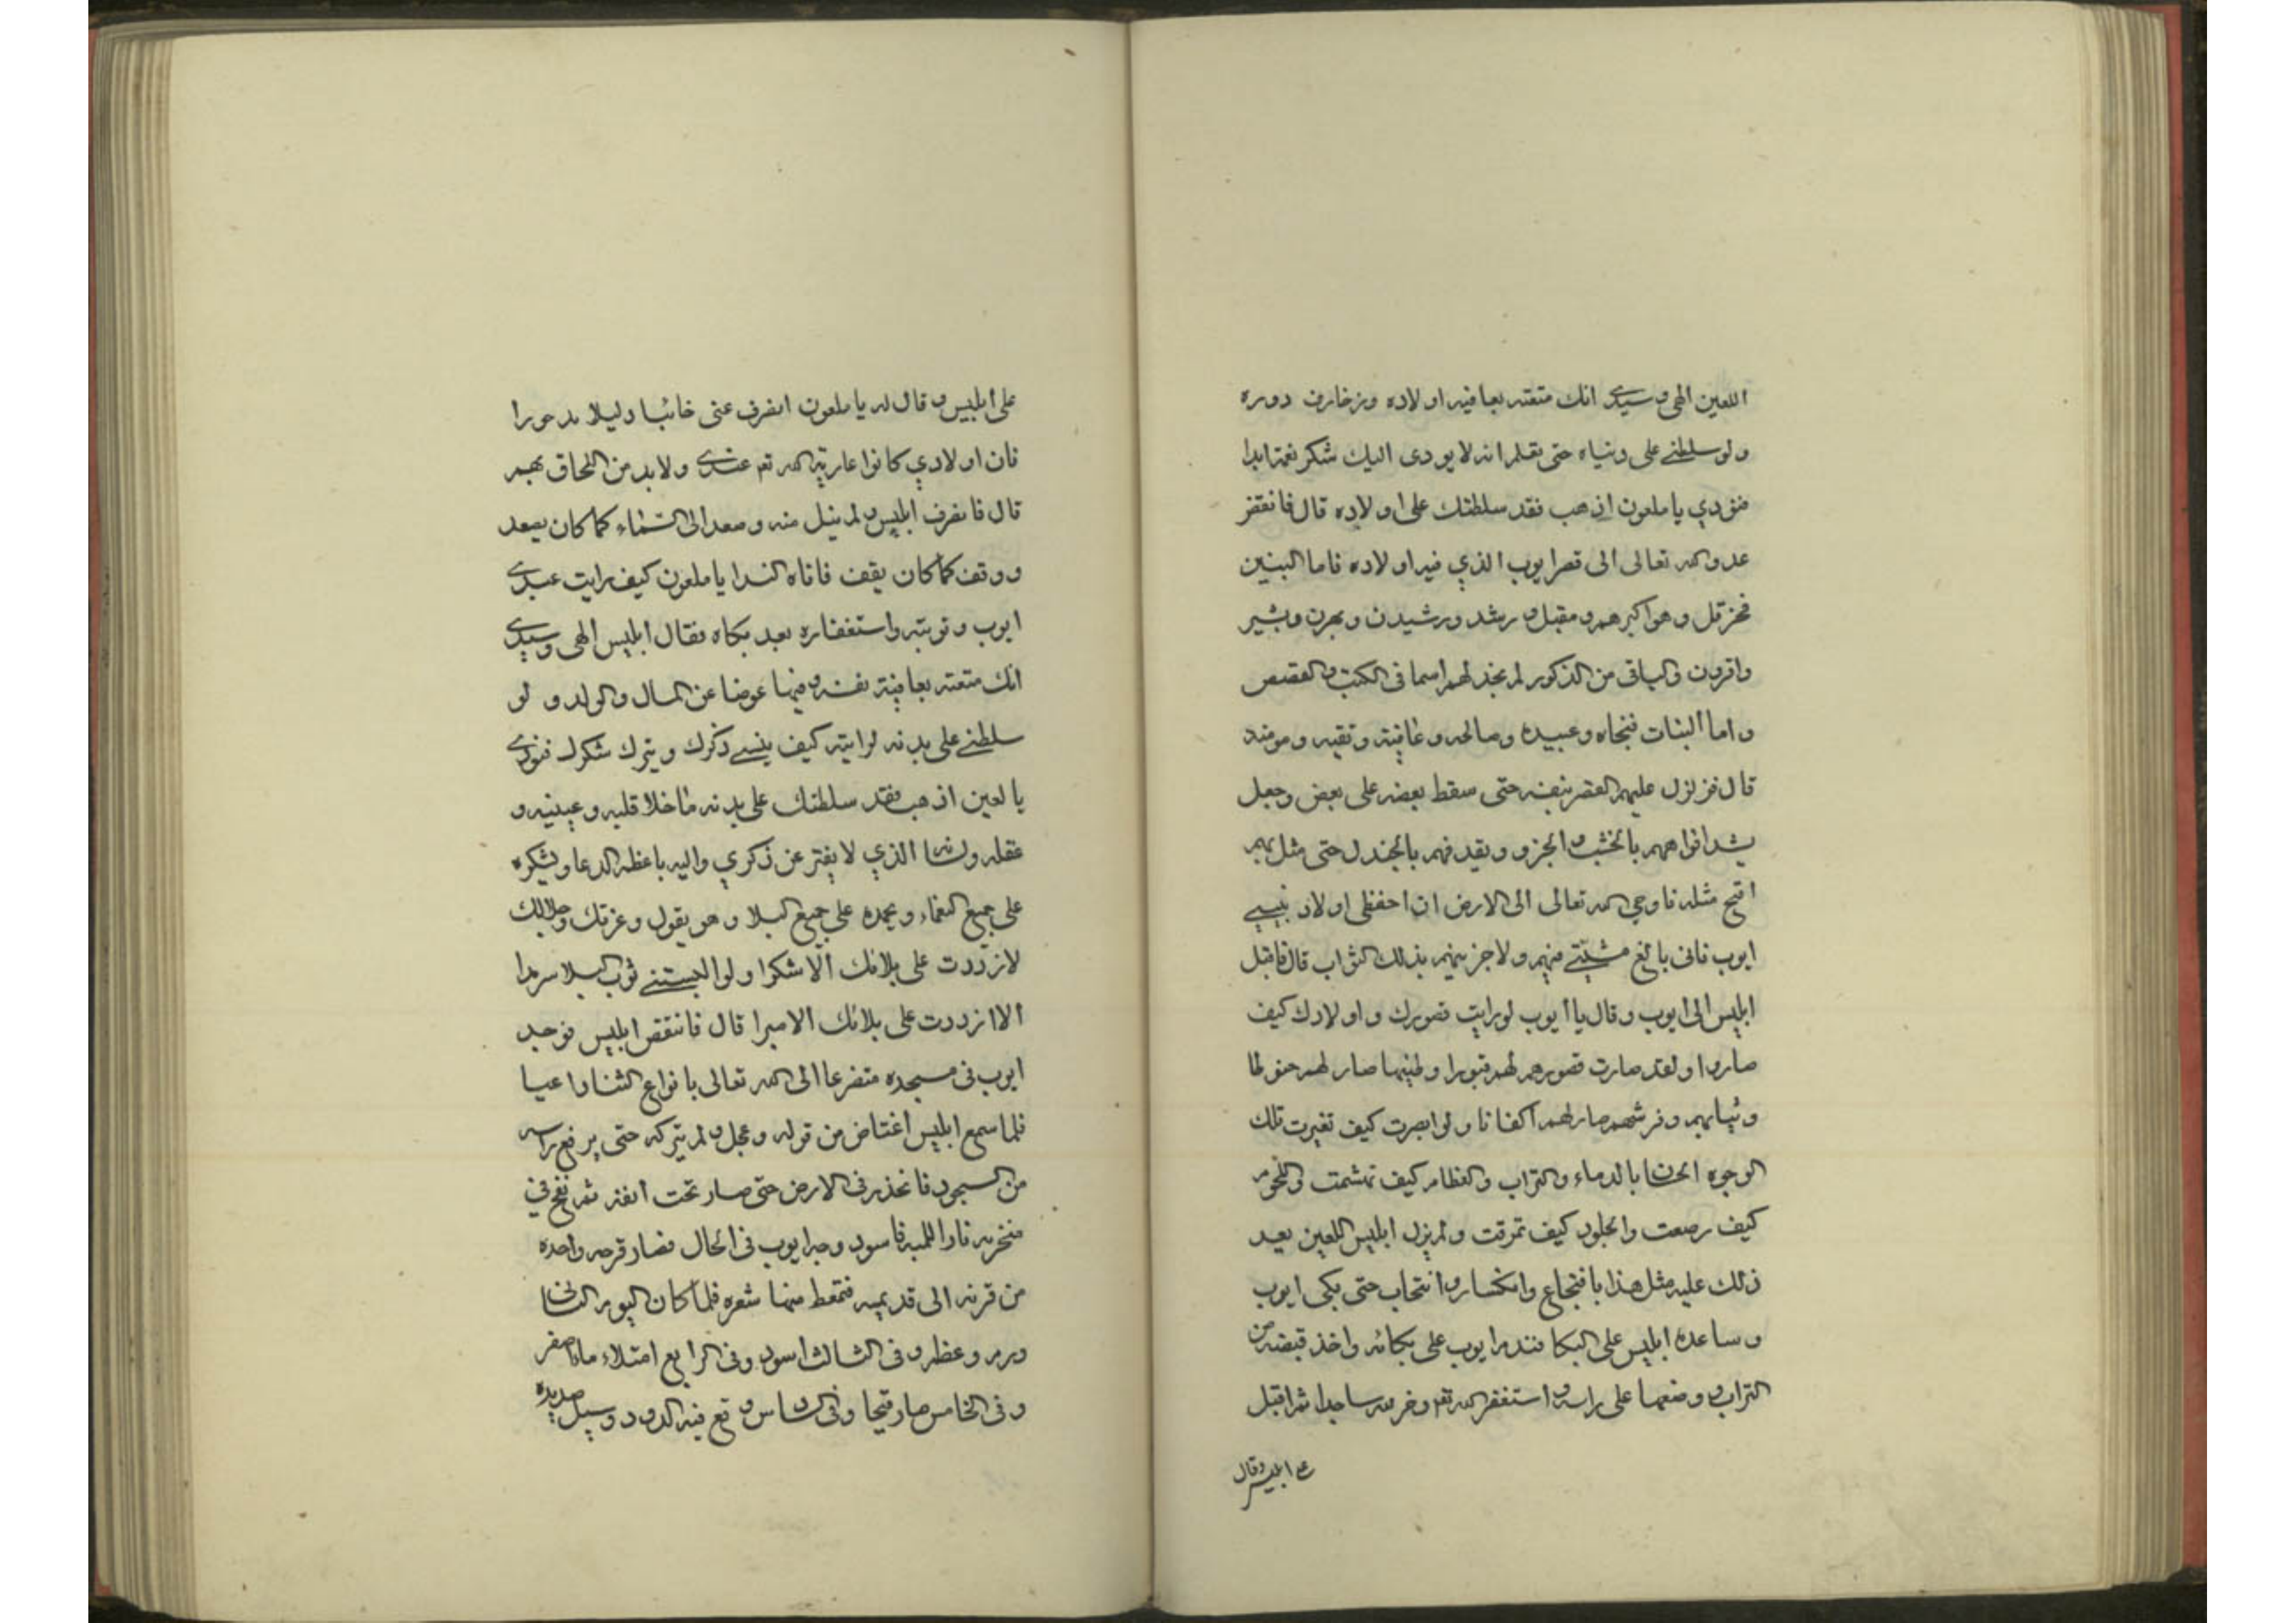 اللعين الهى وسيدى انك متعته بعافية اولاده وزخارف دوره
ولو سلطتنى على دنياه حتى تعلم انه لا يودى اليك شكر نعمة ابدا
فنودي يا ملعون اذهب فقد سلطتك على اولاده قال فانقض
عدو الله تعالى الى قصر ايوب الذي فيه اولاده فاما البنين
فحزقل وهو اكبرهم ومقبل و رشد ورشيدن وبهرن وبشير
واقرون والباقى من الذكور لم نجد لهم اسما فى الكتب والقصص
واما البنات فنجاه وعبيده وصالحه وعافية وتقيه ومومنه
قال فزلزل عليهم القصر بنفسه حتى سقط بعضه على بعض وجعل
يشد افواههم بالخشب و ويقدفهم بالجندل حتى مثل بهم
اقبح مثله فاوحي الله تعالى الى الارض ان احفظى اولاد نبيى
ايوب فانى بالغ مشيئتى فيهم ولاجزينهم بذلك الثواب قال فاقبل
ابليس الى ايوب وقال يا أيوب لو رايت قصورك واولادك كيف
صاروا ولقد صارت قصورهم لهم قبورا وطيبها صار لهم حنوطا
وثيابهم وفرشهم صار لهم اكفانا ولو ابصرت كيف تغيرت تلك
الوجوه الحسان بالدماء والتراب والعظام كيف تهشمت واللحوم
كيف رضعت والجلود كيف تمزقت ولم يزل ابليس اللعين يعيد
ذلك عليه مثل هذا بافتجاع وانكسار وانتحاب حتى بكى ايوب
وساعده ابليس على البكا فندم ايوب على بكائه واخذ قبضة من
التراب ووضعها على راسه واستغفر الله تعم وخر لله ساجدا ثم اقبل
على ابليس وقال
على ابليس وقال له يا ملعون انصرف عنى خائبا دليلا مدحورا
فان اولادي كانوا عارية الله تعم عندى ولا بد من اللحاق بهم
قال فانصرف ابليس ولم ينل منه وصعد الى السماء كما كان يصعد
ووقف كما كان يقف فاتاه الندا يا ملعون كيف رايت عبدى
ايوب وتوبته واستغفاره بعد بكاه فقال ابليس الهى وسيدى
انك متعته بعافية نفسه وفيها عوضا عن المال والولد و لو
سلطتنى على بدنه لرايته كيف ينسى ذكرك ويترك شكرك فنودى
يا لعين اذهب فقد سلطتك على بدنه ماخلا قلبه وعينيه و
عقله ولسانه الذي لا يفتر عن ذكري واليه باعظم الدعا ويشكره
على جميع النعماء ويحمده على جميع البلا وهو يقول وعزتك وجلالك
لازددت على بلائك الا شكرا ولو البستنى ثوب البلا سرمدا
الا ازددت على بلائك الا صبرا قال فانقض ابليس فوجد
ايوب فى مسجده متضرعا الى الله تعالى بانواع الثنا
فلما سمع ابليس اغتاض من قوله وعجل ولم يتركه حتى يرفع راسه
من السجود فانحذر فى الارض حتى صار تحت انفه ثم نفخ في
منخريه نار اللهبه فاسود وجه ايوب فى الحال فصار قرحه واحده
من قرنه الى قدميه فتمعط منها شعره فلما كان اليوم الثانى
ورم وعظم وفى الثالث اسود وفى الرابع امتلاء ماء اصفر
وفى الخامس صار قيحا وفى السادس وقع فيه الدود وسيل صديده